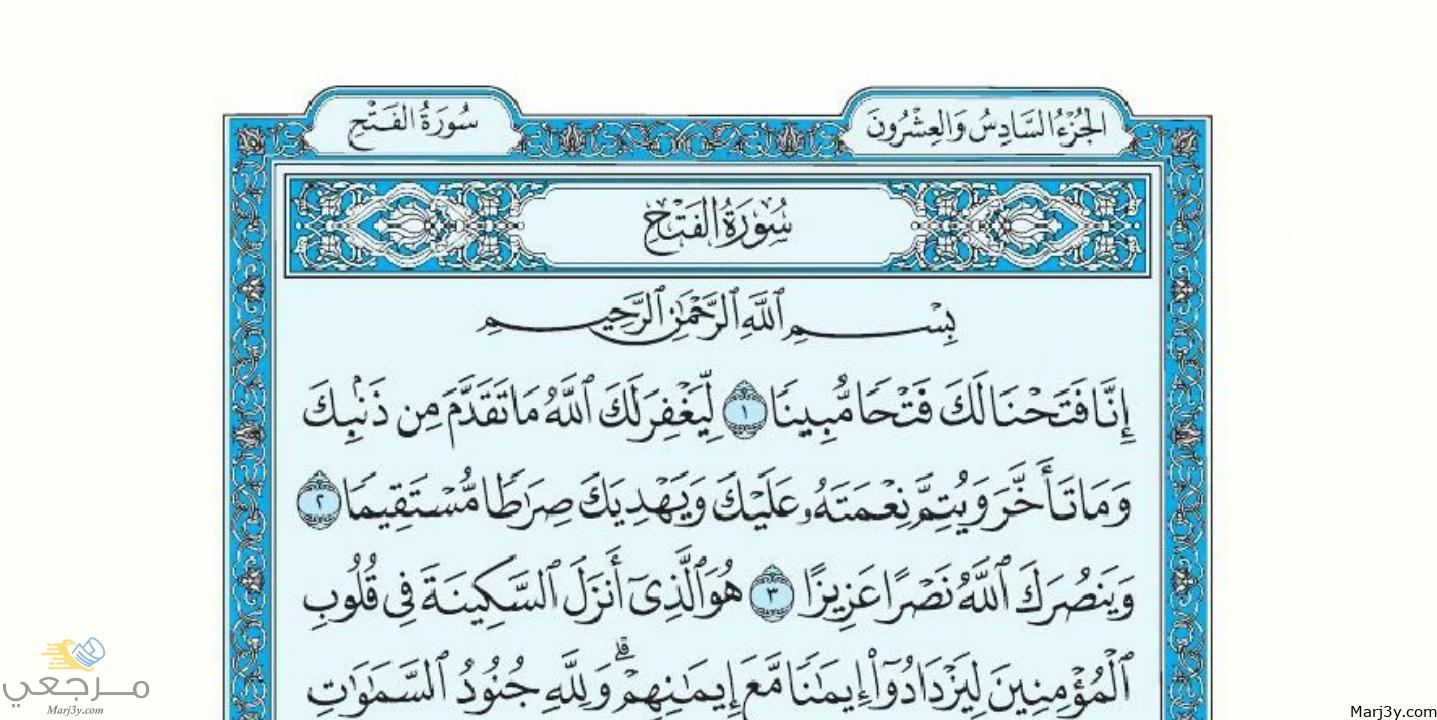 الجُزْءُ السَّادِسُ وَالعِشْرُونَ
سُورَةُ الفَتْحِ
سُورَةُ الفَتْحِ
بِسْمِ ٱللَّهِ ٱلرَّحْمَٰنِ ٱلرَّحِيمِ
إِنَّا فَتَحْنَا لَكَ فَتْحًا مُّبِينًا ١ لِّيَغْفِرَ لَكَ ٱللَّهُ مَا تَقَدَّمَ مِن ذَنۢبِكَ
وَمَا تَأَخَّرَ وَيُتِمَّ نِعْمَتَهُۥ عَلَيْكَ وَيَهْدِيَكَ صِرَٰطًا مُّسْتَقِيمًا ٢
وَيَنصُرَكَ ٱللَّهُ نَصْرًا عَزِيزًا ٣ هُوَ ٱلَّذِىٓ أَنزَلَ ٱلسَّكِينَةَ فِى قُلُوبِ
ٱلْمُؤْمِنِينَ لِيَزْدَادُوٓا۟ إِيمَٰنًا مَّعَ إِيمَٰنِهِمْ ۗ وَلِلَّهِ جُنُودُ ٱلسَّمَٰوَٰتِ
مرجعي
Marj3y.com
Marj3y.com